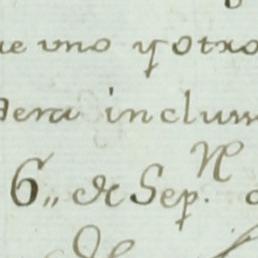 ue vno y otro
dera inclum
6,, de Sep.re